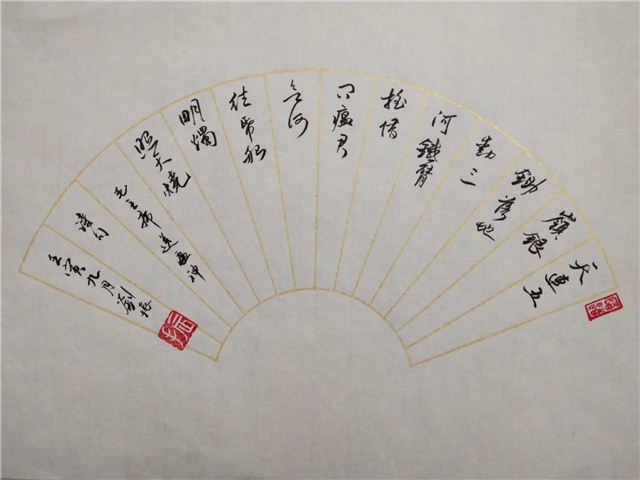 天連五
嶺銀
鋤落地
動三
河鐵臂
搖借
问瘟君
欲何
往紙船
明燭
照天燒
毛主席送瘟神
詩句
壬寅九月劉